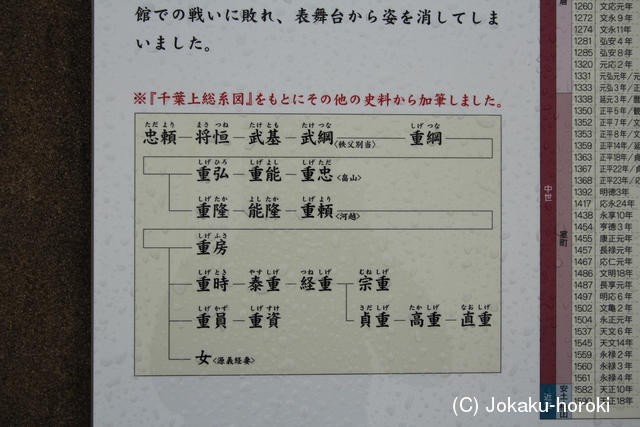 館での戦いに敗れ、表舞台から姿を消してしま
いました。
※『千葉上総系図』をもとにその他の史料から加筆しました。
ただより まさつね たけとも たけつな しげつな
忠頼―将恒―武基―武綱〈秩父別当〉重綱
しげひろ しげよし しげただ
重弘―重能―重忠〈畠山〉
しげたか よしたか しげより
重隆―能隆―重頼〈河越〉
しげふさ
重房
しげとき やすしげ つねしげ むねしげ
重時―泰重―経重 宗重
しげかず しげすけ さだしげ たかしげ なおしげ
重員―重資 貞重―高重―直重
女〈源義経妻〉
中世
室町
近
安土
1260 文応元年
1272 文永9年
1274 文永11年
1281 弘安4年
1285 弘安8年
1320 元応2年
1331 元弘元年
1333
1338 延元3年
1350 正平5年
1352 正平7年
1353 正平8年
1359 正平14年
1363 正平18年
1367 正平22年
1368 正平23年
1392 明徳3年
1417 応永24年
1438 永享10年
1454 享徳3年
1455 康正元年
1457 長禄元年
1467 応仁元年
1486 文明18年
1487 長享元年
1497 明応6年
1502 文亀2年
1504 永正元年
1537 天文6年
1545 天文14年
1559 永禄2年
1560 永禄3年
1561 永禄4年
1582 天正10年
1590 天正18年
(C) Jokaku-horoki